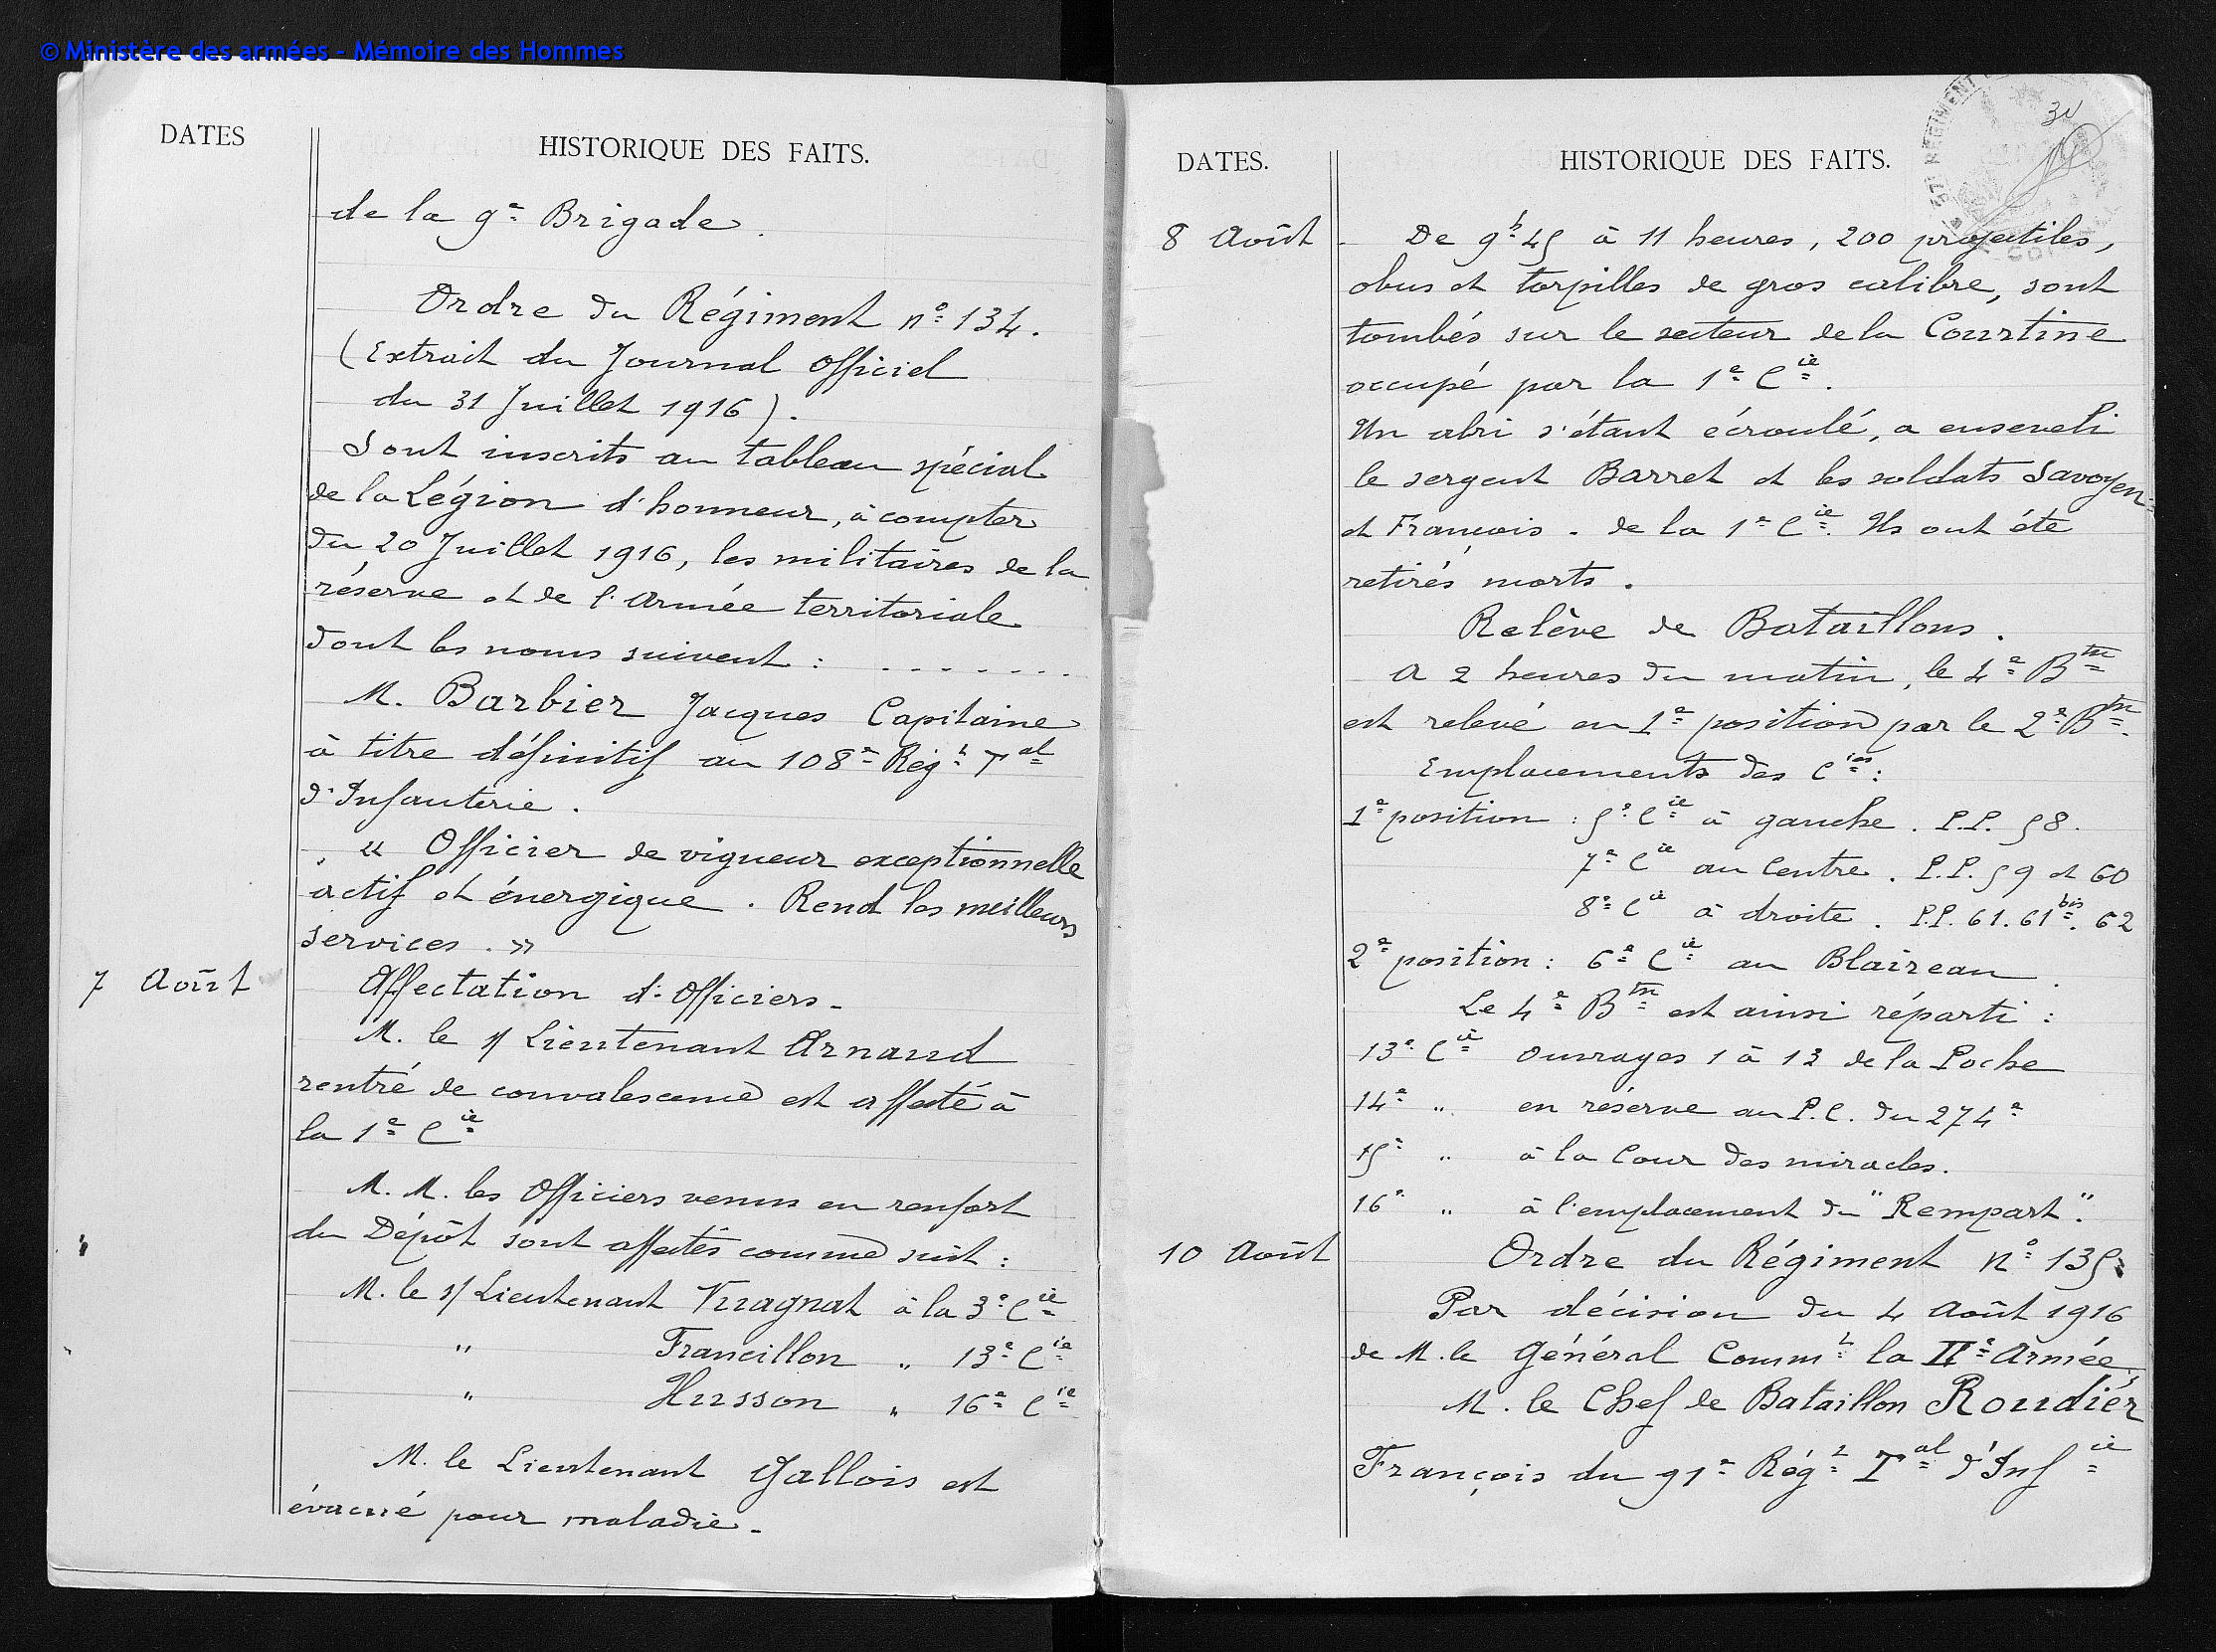 © Ministère des armées - Mémoire des Hommes
DATES
HISTORIQUE DES FAITS.
de la 9e Brigade.
Ordre du Régiment no 134.
(Extrait du Journal Officiel
du 31 Juillet 1916).
Sont inscrits au tableau spécial
de la Légion d'honneur, à compter
du 20 Juillet 1916, les militaires de la
réserve et de l'Armée territoriale
dont les noms suivent : . . . . . .
M. Barbier Jacques Capitaine
à titre définitif au 108e Régt Tal
d'Infanterie.
« Officier de vigueur exceptionnelle
actif et énergique. Rend les meilleurs
services. »
7 Août
Affectation d'Officiers -
M. le s/ Lieutenant Arnaud
rentré de convalescence est affecté à
la 1e Cie
M. M. les Officiers venus en renfort
du Dépôt sont affectés comme suit :
M. le s/ Lieutenant Vuagnat à la 3e Cie
" Francillon " 13e Cie
" Husson " 16e Cie
M. le Lieutenant Gallois est
évacué pour maladie -
REGIMENT
DATES.
HISTORIQUE DES FAITS.
8 Août
De 9h 45 à 11 heures, 200 projectiles,
obus et torpilles de gros calibre, sont
tombés sur le secteur de la Courtine
occupé par la 1e Cie.
Un abri s'étant écroulé, a enseveli
le sergent Barret et les soldats Savoyen
et Francois - de la 1e Cie. Ils ont été
retirés morts.
Relève de Bataillons.
A 2 heures du matin, le 4e Bon
est relevé en 1e position par le 2e Bon.
Emplacements des Cies :
1e position : 5e Cie à gauche. P.P. 58.
7e Cie au Centre. P.P. 59 et 60
8e Cie à droite. P.P. 61. 61bis. 62
2e position : 6e Cie au Blaireau.
Le 4e Bon est ainsi réparti :
13e Cie ouvrages 1 à 13 de la Poche
14e " en réserve au P.C. du 274e
15e " à la Cour des miracles.
16e " à l'emplacement du "Rempart".
10 Août
Ordre du Régiment No 135
Par décision du 4 Août 1916
de M. le Général Commt la IIe Armée,
M. le Chef de Bataillon Roudier
François du 91e Régt Tal d'Infie